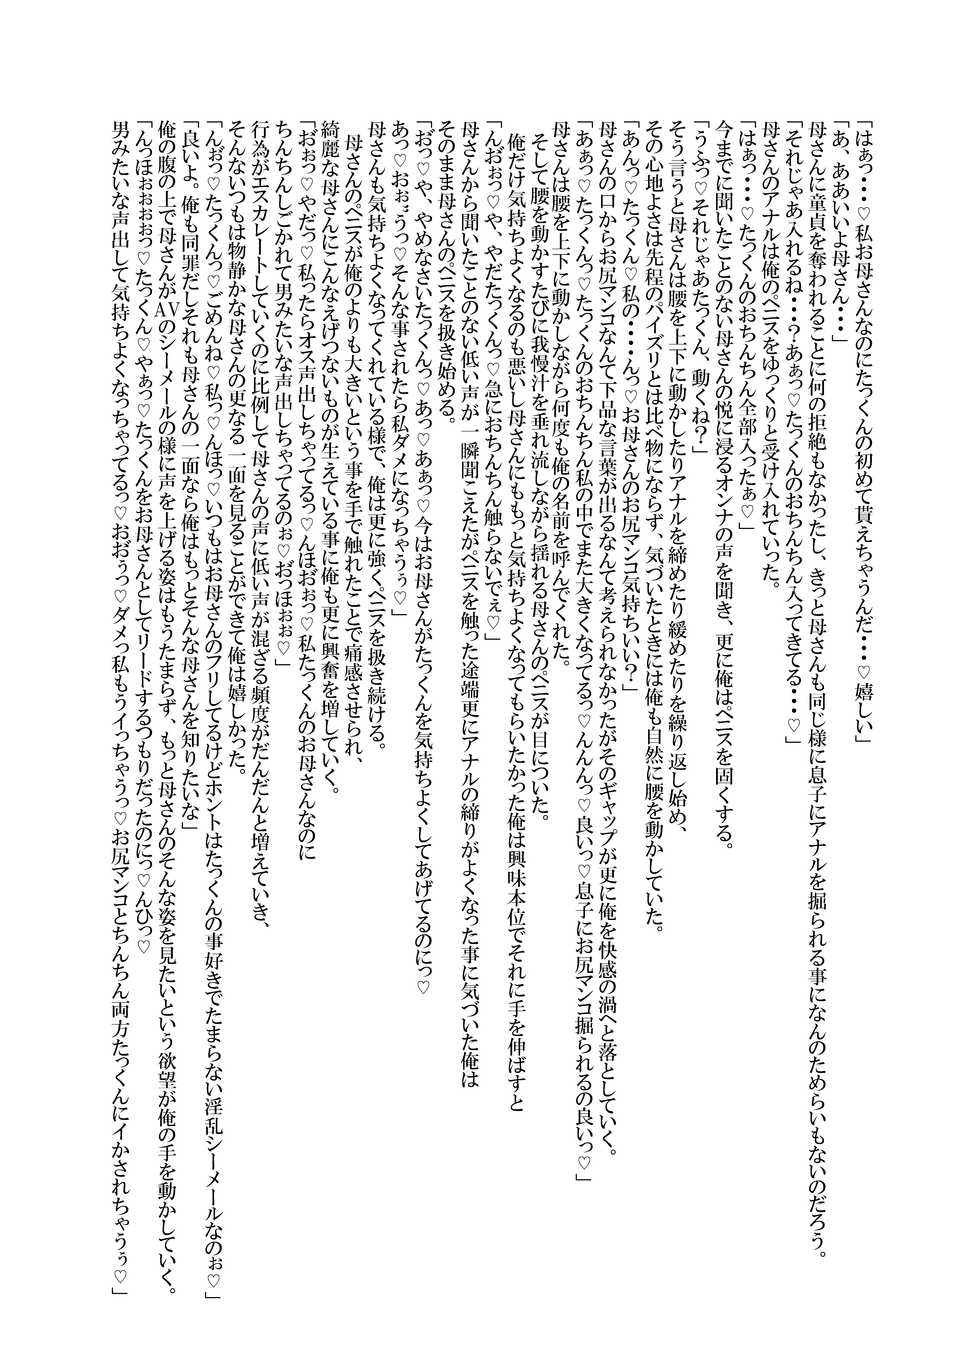 「はぁっ・・・♡私お母さんなのにたっくんの初めて貰えちゃうんだ・・・♡嬉しい」
「あ、ああいいよ母さん・・・」
母さんに童貞を奪われることに何の拒絶もなかったし、きっと母さんも同じ様に息子にアナルを掘られる事になんのためらいもないのだろう。
「それじゃあ入れるね・・・？あぁっ♡たっくんのおちんちん入ってきてる・・・♡」
母さんのアナルは俺のペニスをゆっくりと受け入れていった。
「はぁっ・・・♡たっくんのおちんちん全部入ったぁ♡」
今までに聞いたことのない母さんの悦に浸るオンナの声を聞き、更に俺はペニスを固くする。
「うふっ♡それじゃあたっくん、動くね？」
そう言うと母さんは腰を上下に動かしたりアナルを締めたり緩めたりを繰り返し始め、
その心地よさは先程のパイズリとは比べ物にならず、気づいたときには俺も自然に腰を動かしていた。
「あんっ♡たっくん♡私の・・・んっ♡お母さんのお尻マンコ気持ちいい？」
母さんの口からお尻マンコなんて下品な言葉が出るなんて考えられなかったがそのギャップが更に俺を快感の渦へと落としていく。
「あぁっ♡たっくんっ♡たっくんのおちんちん私の中でまた大きくなってるっ♡んんんっ♡良いっ♡息子にお尻マンコ掘られるの良いっ♡」
母さんは腰を上下に動かしながら何度も俺の名前を呼んでくれた。
そして腰を動かすたびに我慢汁を垂れ流しながら揺れる母さんのペニスが目についた。
俺だけ気持ちよくなるのも悪いし母さんにももっと気持ちよくなってもらいたかった俺は興味本位でそれに手を伸ばすと
「んお゛ぉっ♡や、やだたっくんっ♡急におちんちん触らないでぇ♡」
母さんから聞いたことのない低い声が一瞬聞こえたがペニスを触った途端更にアナルの締りがよくなった事に気づいた俺は
そのまま母さんのペニスを扱き始める。
「お゛っ♡や、やめなさいたっくんっ♡あっ♡あぁっ♡今はお母さんがたっくんを気持ちよくしてあげてるのにっ♡
あっ♡おぉ゛うっ♡そんな事されたら私ダメになっちゃうぅ♡」
母さんも気持ちよくなってくれている様で、俺は更に強くペニスを扱き続ける。
母さんのペニスが俺のよりも大きいという事を手で触れたことで痛感させられ、
綺麗な母さんにこんなえげつないものが生えている事に俺も更に興奮を増していく。
「お゛ぉっ♡やだっ♡私ったらオス声出しちゃってるっ♡んほお゛ぉっ♡私たっくんのお母さんなのに
ちんちんしごかれて男みたいな声出しちゃってるのぉ♡お゛っほぉぉ♡」
行為がエスカレートしていくのに比例して母さんの声に低い声が混ざる頻度がだんだんと増えていき、
そんないつもは物静かな母さんの更なる一面を見ることができて俺は嬉しかった。
「んお゛っ♡たっくんっ♡ごめんね♡私っ♡んほっ♡いつもはお母さんのフリしてるけどホントはたっくんの事好きでたまらない淫乱シーメールなのぉ♡」
「良いよ。俺も同罪だしそれも母さんの一面なら俺はもっとそんな母さんを知りたいな」
俺の腹の上で母さんがAVのシーメールの様に声を上げる姿はもうたまらず、もっと母さんのそんな姿を見たいという欲望が俺の手を動かしていく。
「んっほぉぉぉぉっ♡たっくん♡やぁっ♡たっくんをお母さんとしてリードするつもりだったのにっ♡んひっ♡
男みたいな声出して気持ちよくなっちゃってるっ♡おお゛ぅっ♡ダメっ私もうイっちゃうっ♡お尻マンコとちんちん両方たっくんにイかされちゃうぅ♡」